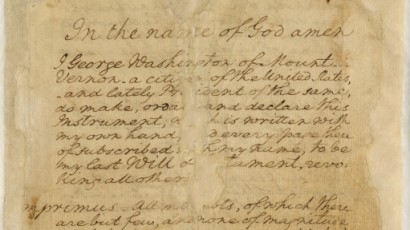 In the name of God amen
I George Washington of Mount
Vernon a citi of the United States,
and lately P ident of the same,
do make, orda and declare this
Instrument, w h is written with
my own hand every page there
of subscribed h my name, to be
my last Will & tament, revo
king all other
mprimus. All my bts, of which there
are but few, and none of magnitude